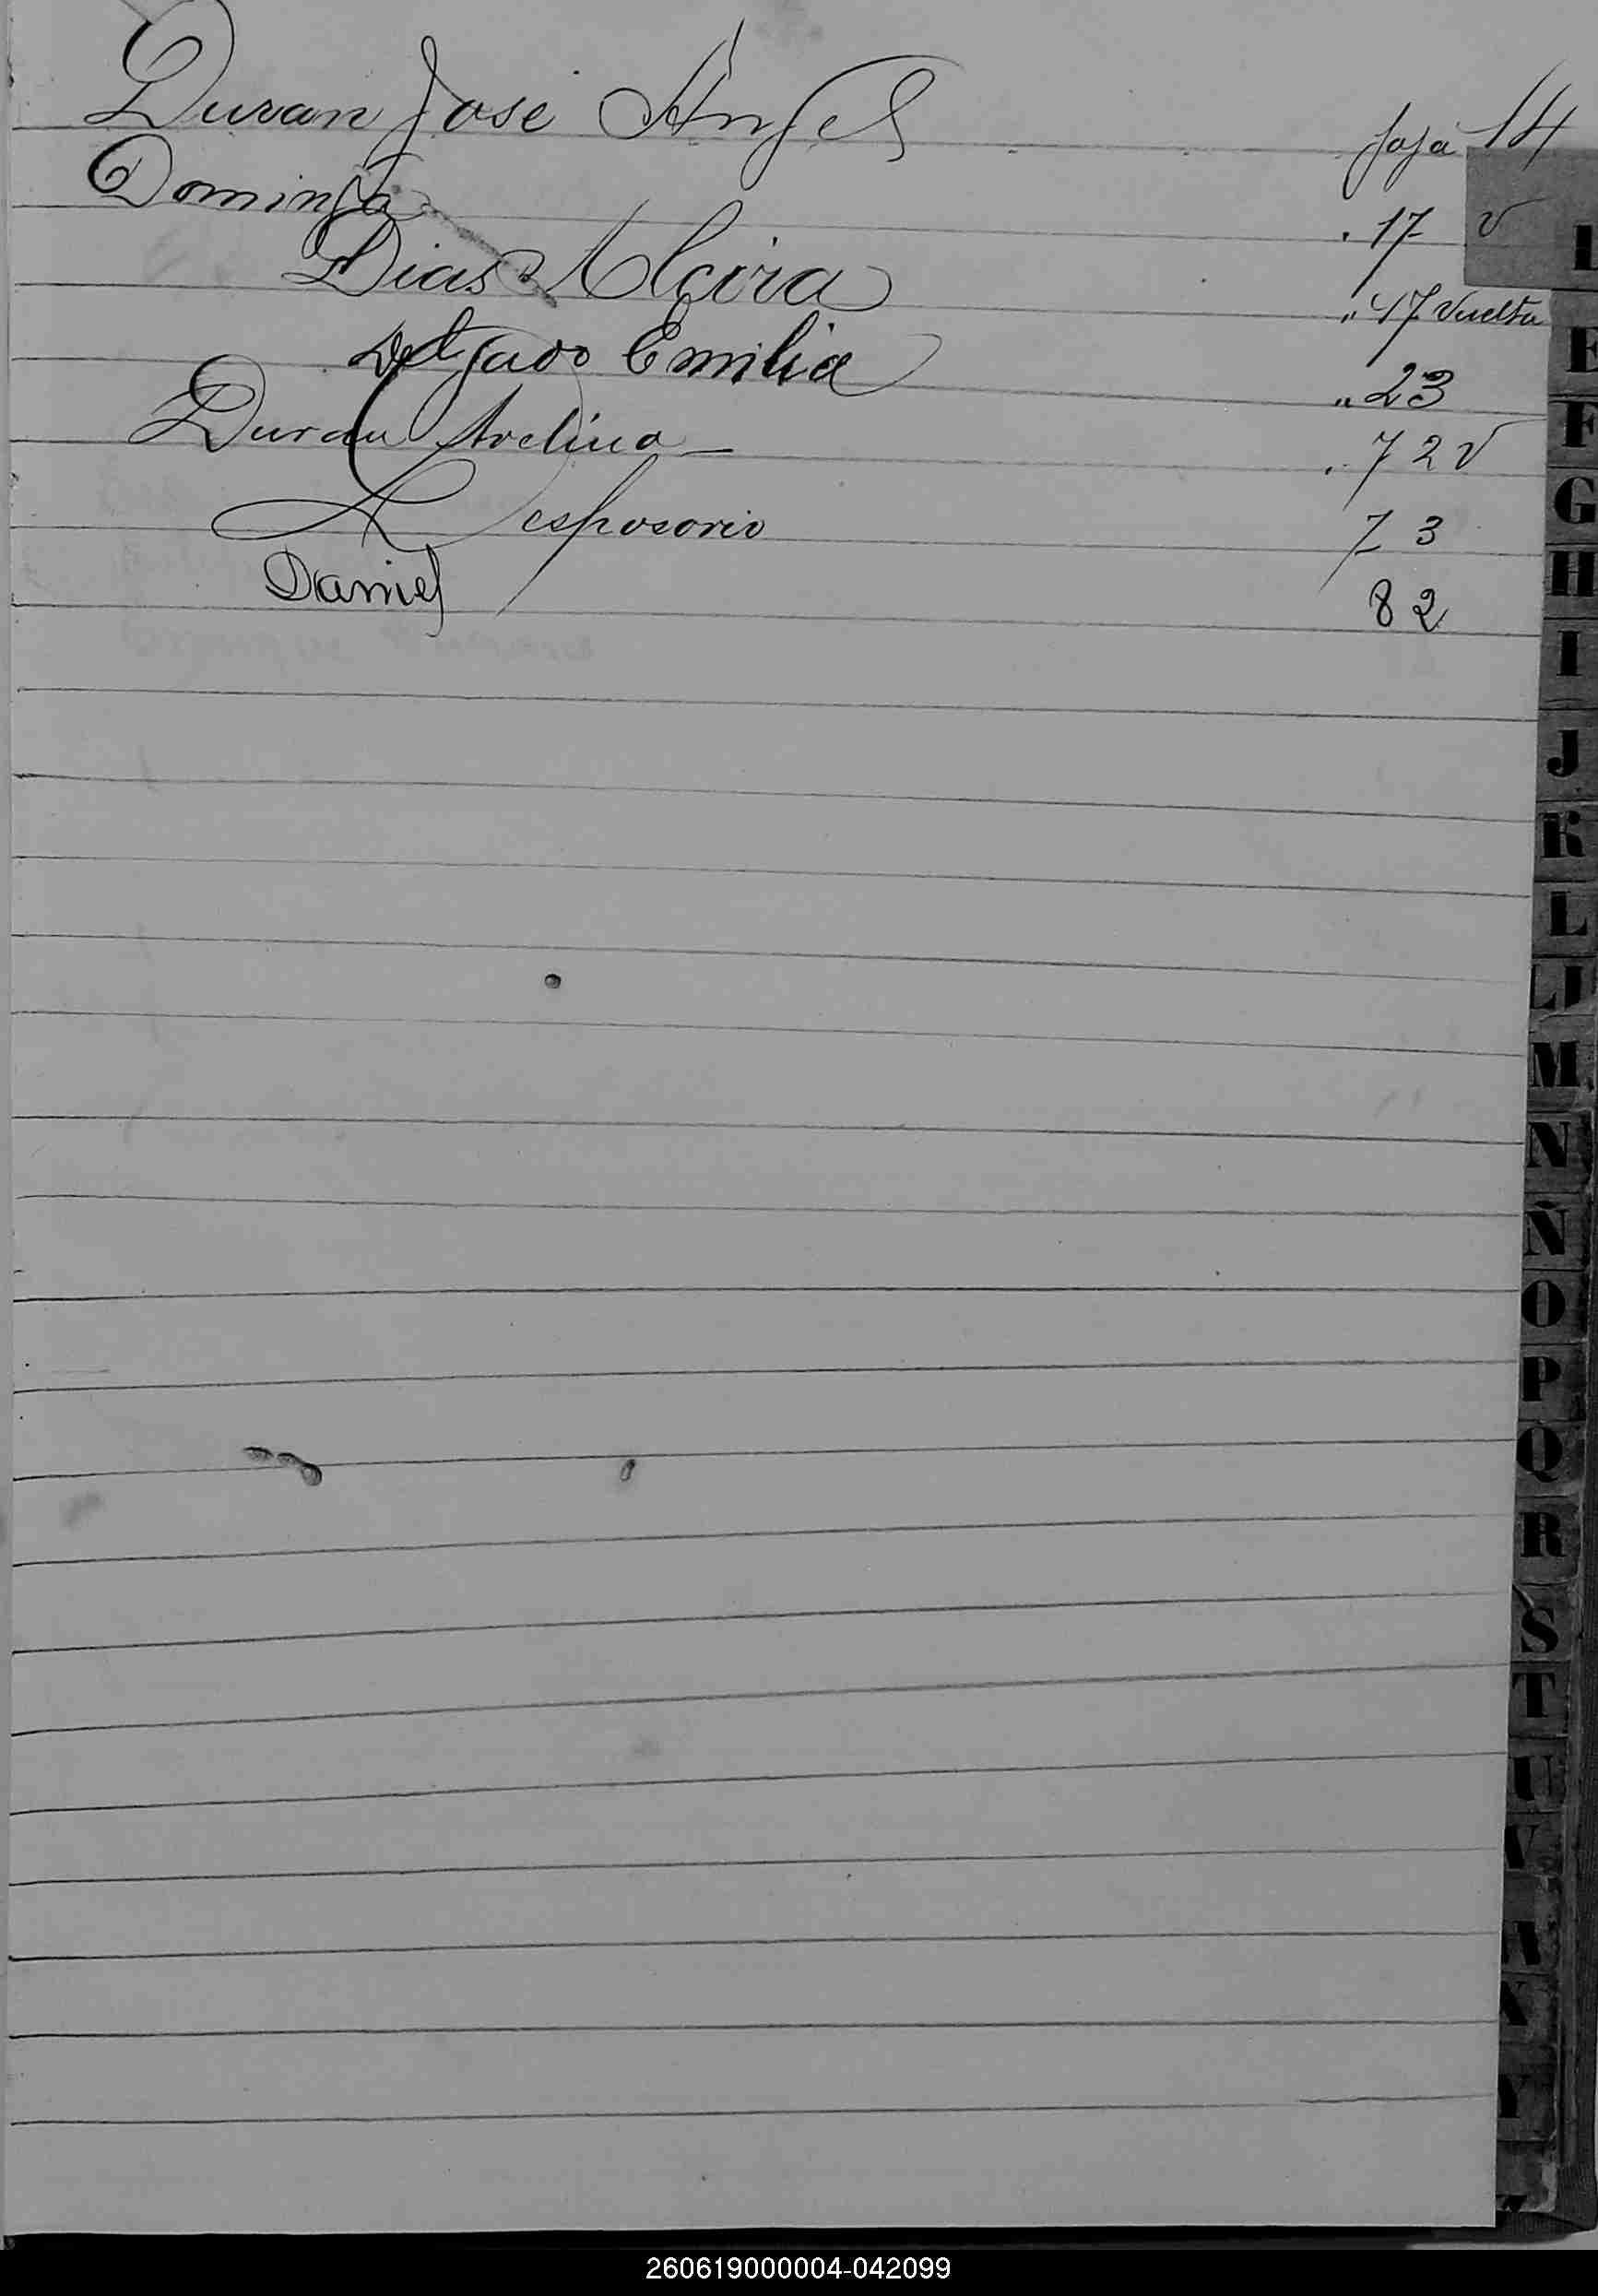 Duran José Angel foja 14
Dominga . 17 v
Dias Alcira " 47 Vuelta
Delgado Emilia " 23
Duran Avelina — . 72 V
Desposorio 73
Daniel 82
E
F
G
H
I
J
K
L
Ll
M
N
Ñ
O
P
Q
R
S
T
U
V
X
Y
260619000004-042099